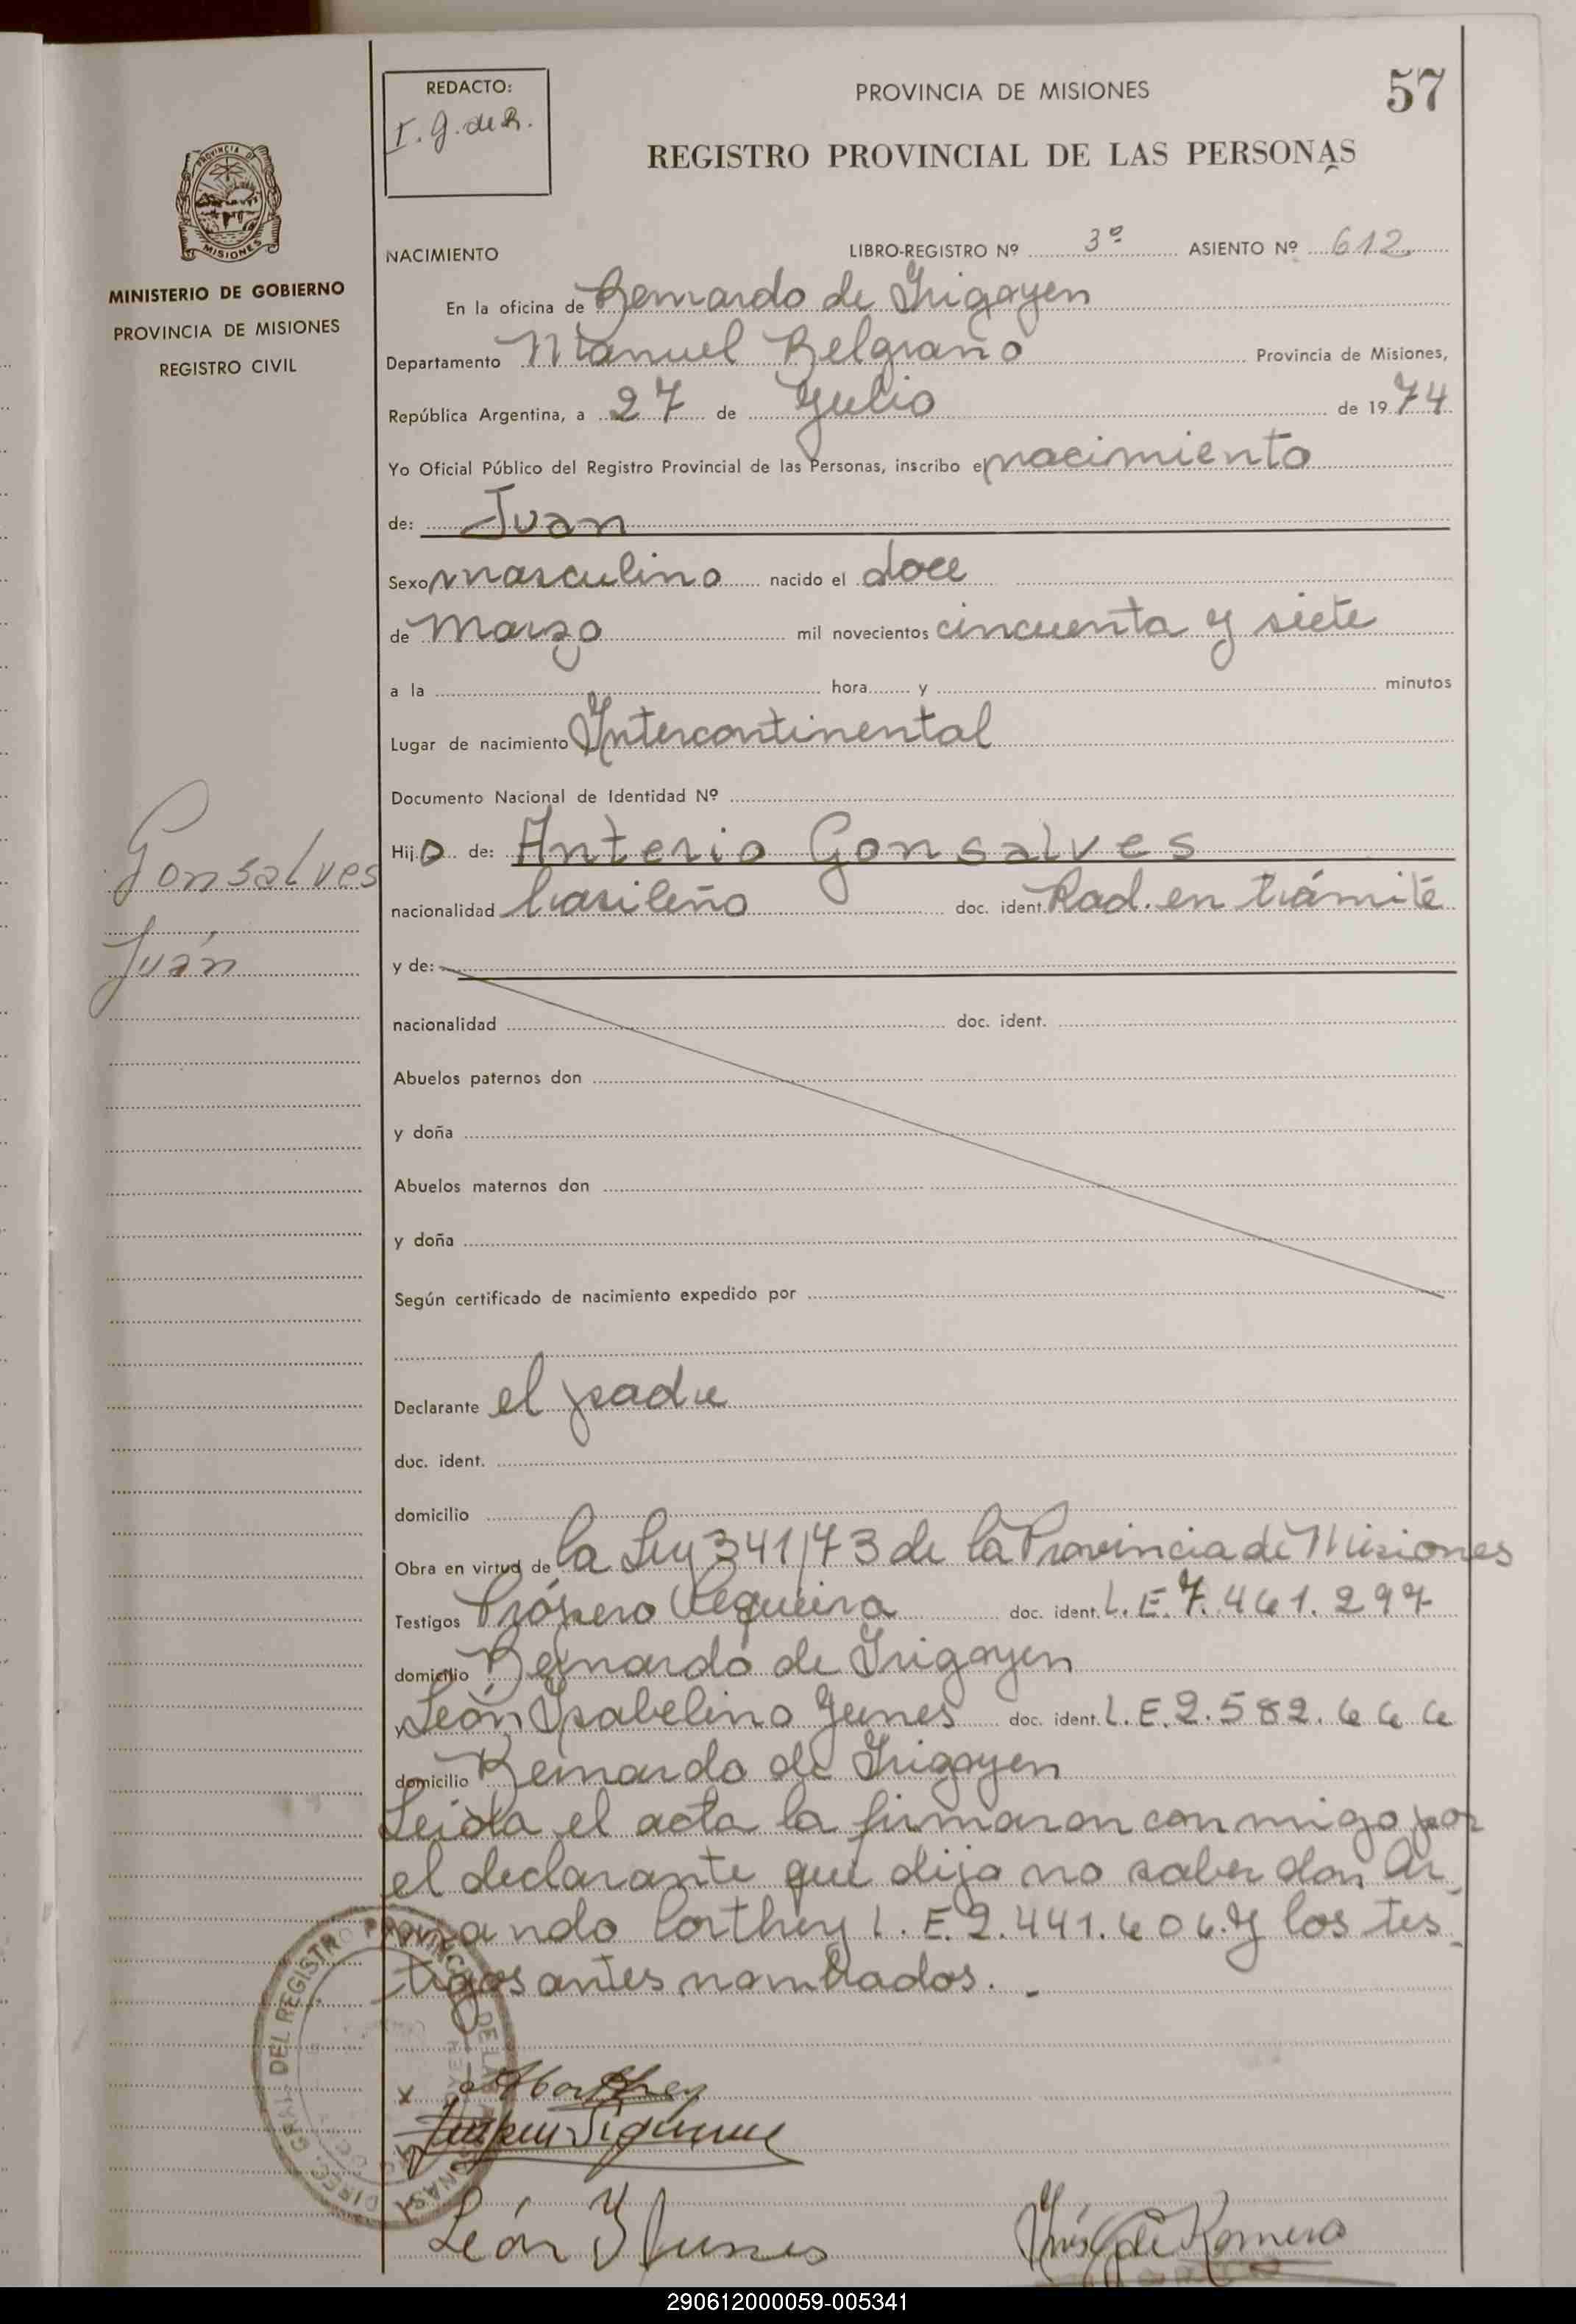 57
REDACTO:
I. G. de R.
PROVINCIA DE MISIONES
REGISTRO PROVINCIAL DE LAS PERSONAS
PROVINCIA DE
MISIONES
MINISTERIO DE GOBIERNO
PROVINCIA DE MISIONES
REGISTRO CIVIL
NACIMIENTO LIBRO-REGISTRO Nº 3º ASIENTO Nº 612
En la oficina de Bernardo de Irigoyen
Departamento Manuel Belgrano Provincia de Misiones,
República Argentina, a 27 de Julio de 1974
Yo Oficial Público del Registro Provincial de las Personas, inscribo el nacimiento
de: Juan
Sexo masculino nacido el doce
de Marzo mil novecientos cincuenta y siete
a la hora y minutos
Lugar de nacimiento Intercontinental
Documento Nacional de Identidad Nº
Hijo de: Anterio Gonsalves
nacionalidad brasileño doc. ident. Rad. en trámite
Gonsalves
Juán
y de:
nacionalidad doc. ident.
Abuelos paternos don
y doña
Abuelos maternos don
y doña
Según certificado de nacimiento expedido por
Declarante el padre
doc. ident.
domicilio
Obra en virtud de la Ley 341/73 de la Provincia de Misiones
Testigos Próspero doc. ident. L.E. 7.461.297
domicilio Bernardo de Irigoyen
y León Ysabelino doc. ident. L.E. 2.582.666
domicilio Bernardo de Irigoyen
Leída el acta la firmaron conmigo por
el declarante que dijo no saber don Ar
mando Corthey L.E. 2.441.606. y los tes
tigos antes nombrados. -
DIREC. GRAL. DEL REGISTRO PROVINCIAL DE LAS PERSONAS
x
León Y
Inés G de Romero
290612000059-005341